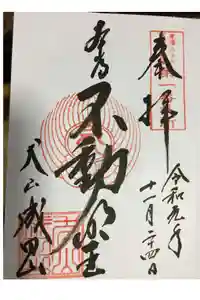 奉拝
令和元年
十一月二十四日
不動明王
犬山成田山